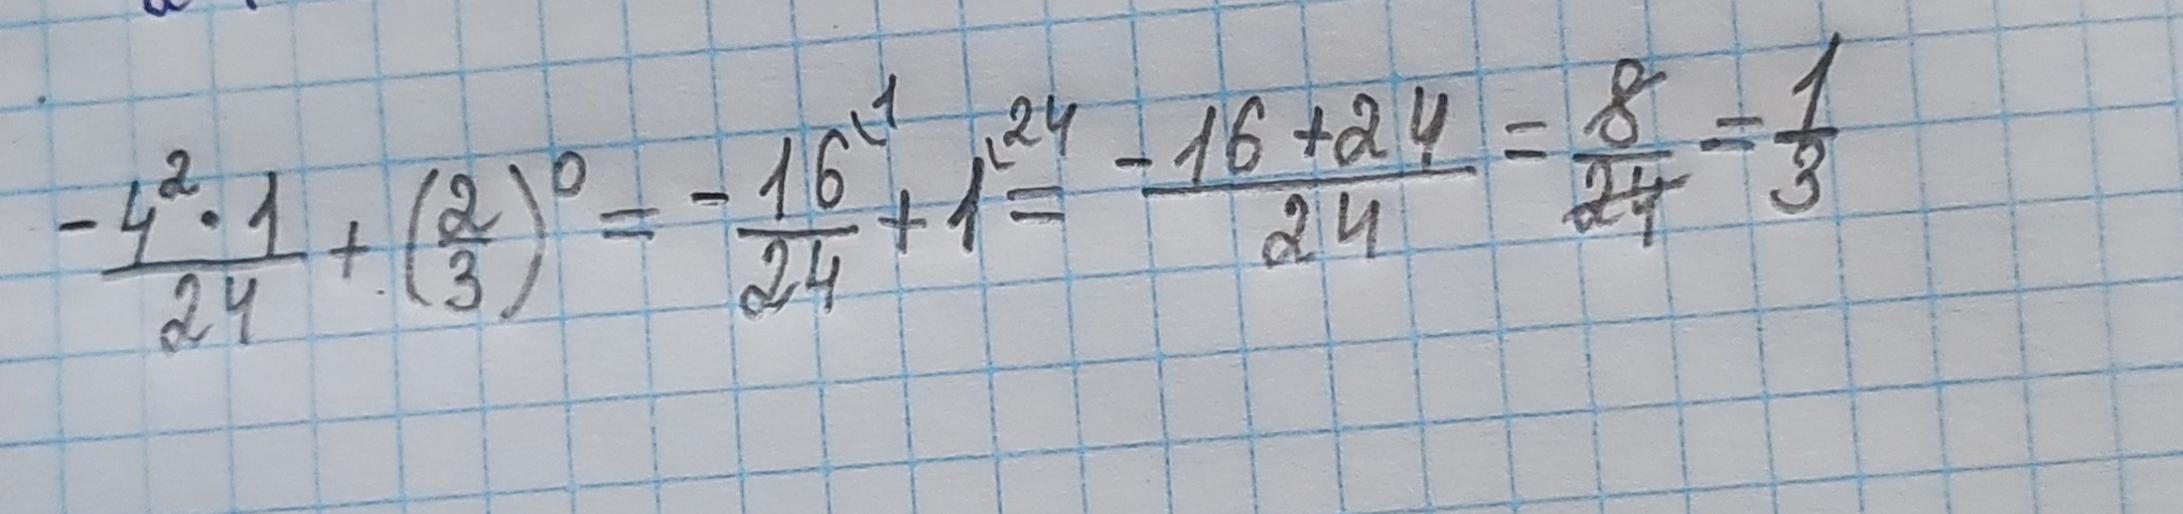 -4²·1/24 + (2/3)⁰ = -16\¹/24 + 1\²⁴ = -16+24/24 = 8/24 = 1/3